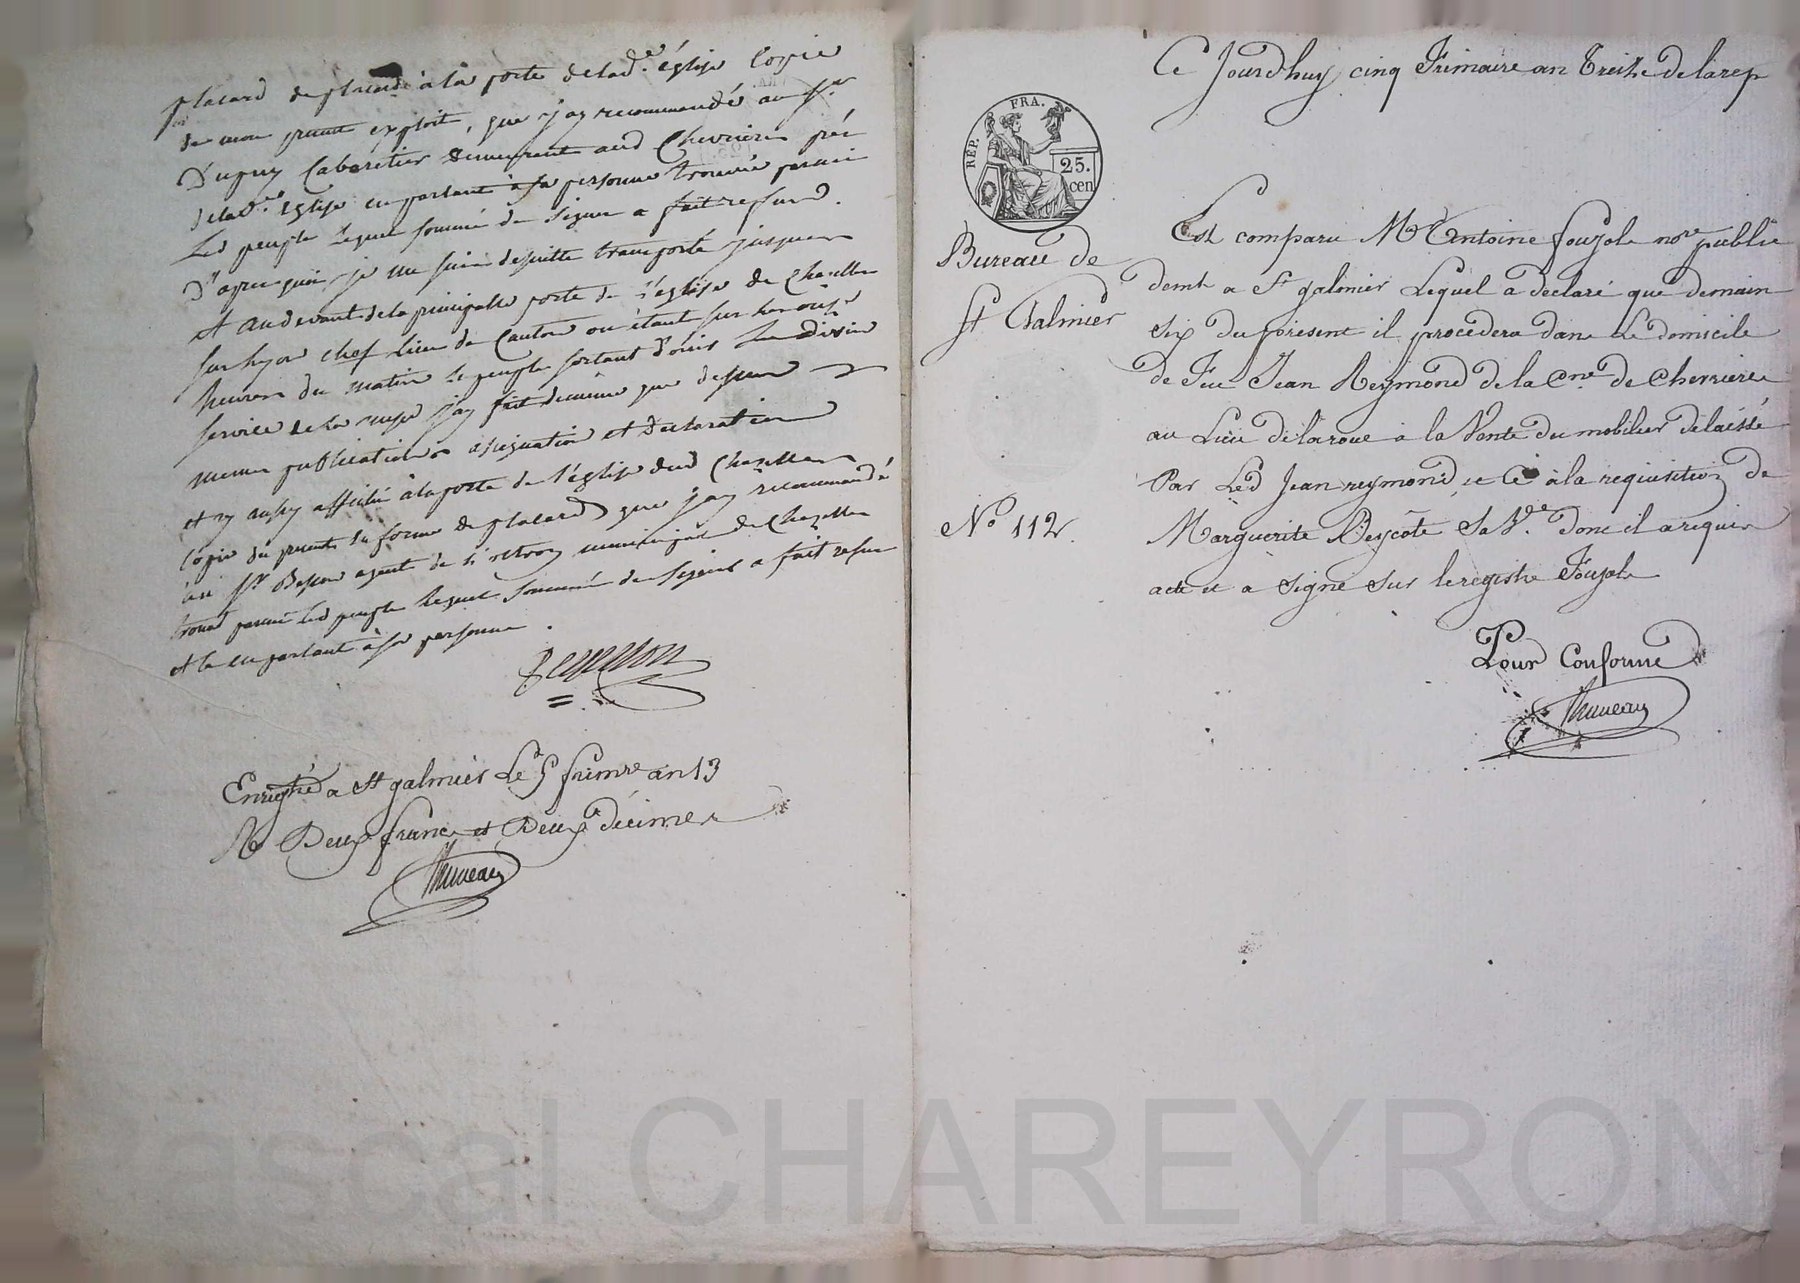 placard de placard à la porte de lad.e église Copie
de mon present exploit, que j'ay recommandé au Sr
Dupuy Cabaretier demeurant aud Chevrieres près
de lad.e Eglise en parlant à sa personne trouvée parmi
Led peuple Lequel sommé de signer a fait refus.
D'apres quoi je me suis desuitte transporté jusques
et audevant de la principalle porte de l'église de Chazelles
sur Lyon chef Lieu de Canton ou étant sur les onze
heures du matin le peuple sortant d'ouir Les divin
service de la messe j'ay fait de même que dessus
mesmes publications assignation et declaration
et ay aussy affiché à la porte de l'église dud Chazelles
Copie du present en forme de placard que j'ay recommandé
au Sr Besson agent de l'octroy municipal de Chazelles
trouvé parmi Led peuple Lequel Sommé de Signer a fait refus
et ce en parlant à sa personne.
Enregtré a St galmier Le 5 frimre an 13
R Deux francs et Deux décimes
Thuveau
Ce Jourdhuy cinq Frimaire an Treize de la rep
REP. FRA.
25.
cen
Bureau de
St Galmier
N.o 112.
Est comparu Mr Antoine foujols nore public
demt a St galmier Lequel a declaré que demain
Six du présent il procedera dans Le domicile
de Feu Jean Reymond de la Cne de Chevrieres
au Lieu de laroue à la Vente du mobilier délaissé
Par Led Jean reymond, et Ce à la requisition de
Marguerite Peycote Sa Ve. dont il a requis
acte et a Signé Sur le registre Foujols
Pour Conforme
Thuveau
Pascal CHAREYRON